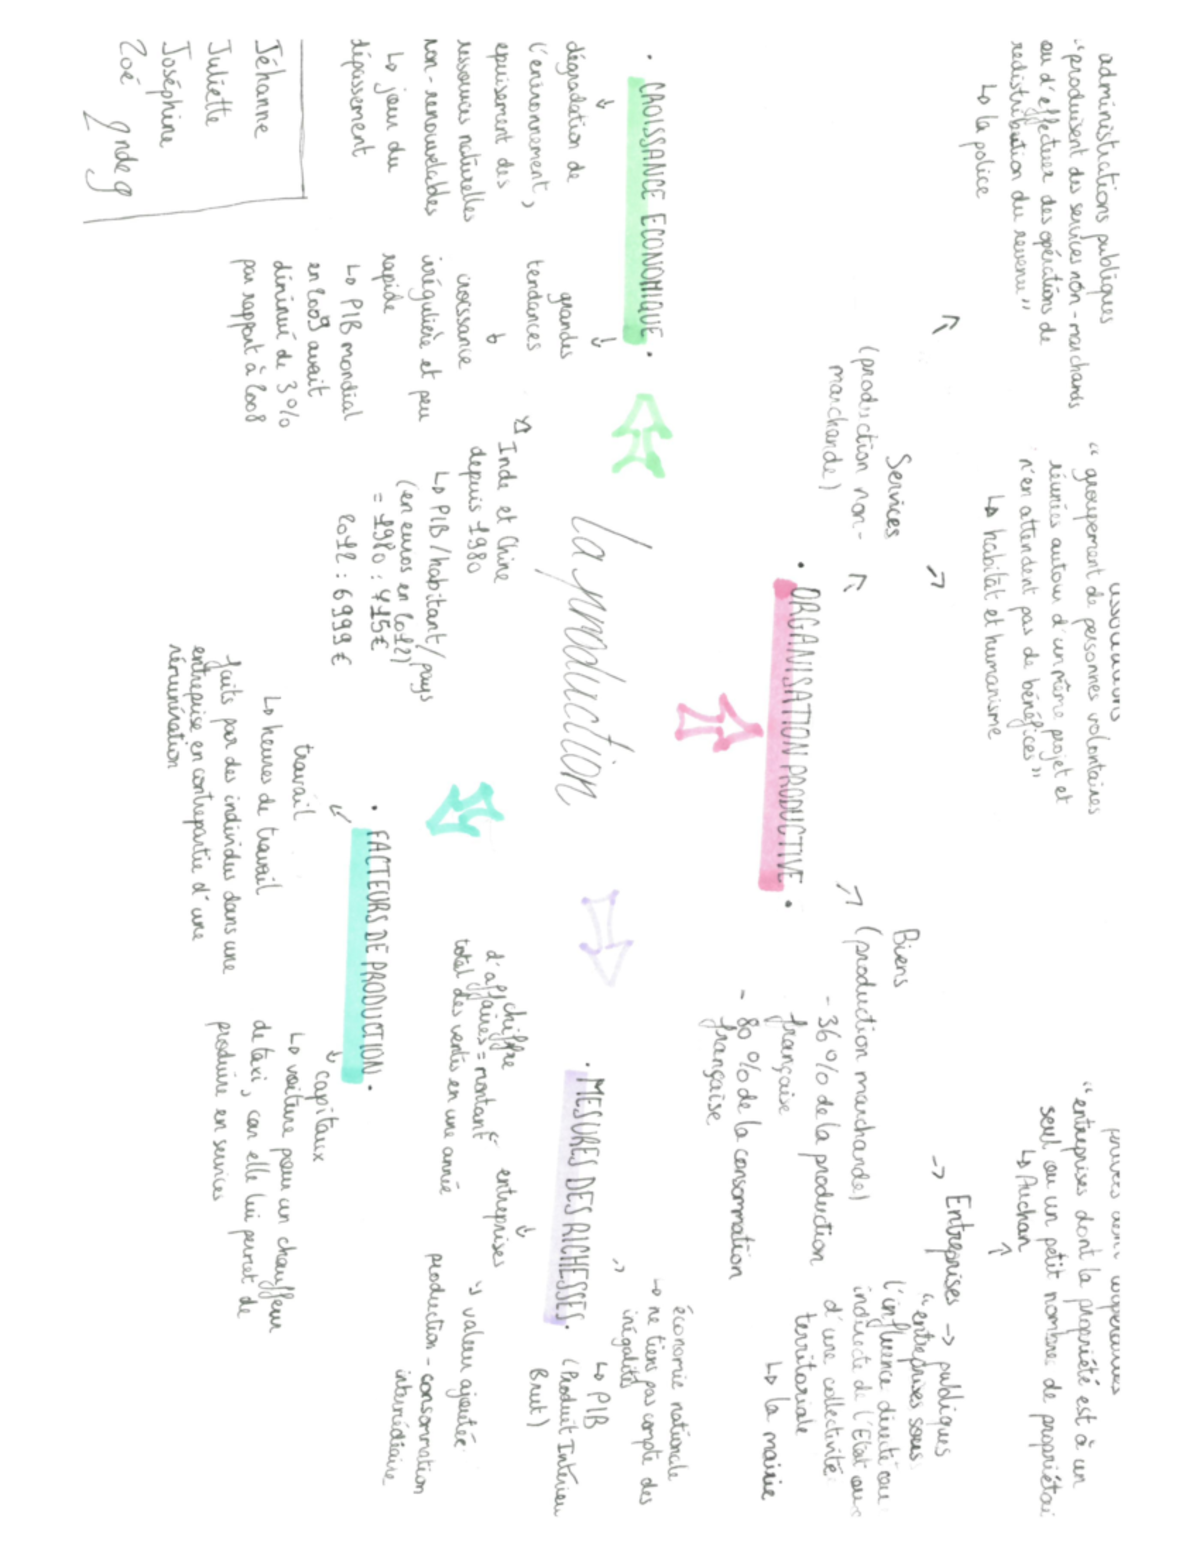 administrations publiques
"produisent des services non-marchands
ou d'effectuer des opérations de
redistribution du revenu"
↳ la police
"groupement de personnes volontaires
réunies autour d'un même projet et
n'en attendent pas de bénéfices"
↳ habitat et humanisme
"entreprises dont la propriété est à un
seul ou un petit nombre de
↳ Auchan
Services
(production non-
marchande)
Biens
(production marchande)
- 36% de la production
française
- 80% de la consommation
française
→ Entreprises → publiques
"entreprises sous
l'influence directe ou
indirecte de l'Etat ou
d'une collectivité
territoriale
↳ la mairie
• ORGANISATION PRODUCTIVE •
• CROISSANCE ECONOMIQUE •
dégradation de
l'environnement,
epuisement des
ressources naturelles
non-renouvelables
↳ jour du
dépassement
grandes
tendances
croissance
irrégulière et peu
rapide
↳ PIB mondial
en 2009 avait
diminué de 3%
par rapport à 2008
Inde et Chine
depuis 1980
↳ PIB/habitant/pays
(en euros en 2012)
= 1980 : 415€
2012 : 6999€
La production
• MESURES DES RICHESSES •
économie nationale
↳ ne tiens pas compte des
inégalités
↳ PIB
(Produit Intérieu
Brut)
entreprises
chiffre
d'affaires = montant
total des ventes en une année
valeur ajoutée
production - consommation
intermédiaire
• FACTEURS DE PRODUCTION •
travail
↳ heures de travail
faits par des individus dans une
entreprise en contrepartie d'une
rémunération
capitaux
↳ voiture pour un chauffeur
de taxi, car elle lui permet de
produire en services
Jéhanne
Juliette
Joséphine
Zoé
2nde 9